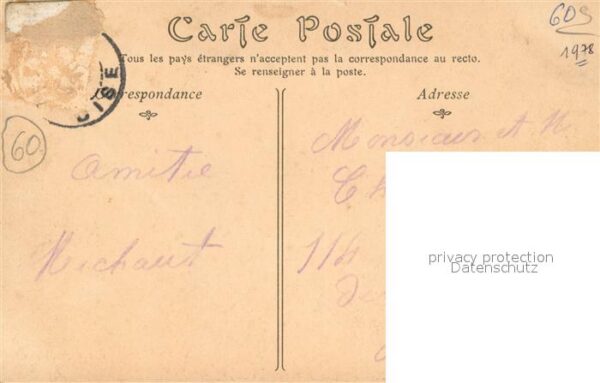 Carte Postale
Tous les pays étrangers n'acceptent pas la correspondance au recto.
Se renseigner à la poste.
Correspondance
Adresse
OISE
60
609
1978
Amitie
Richaut
Monsieur et
114
privacy protection
Datenschutz